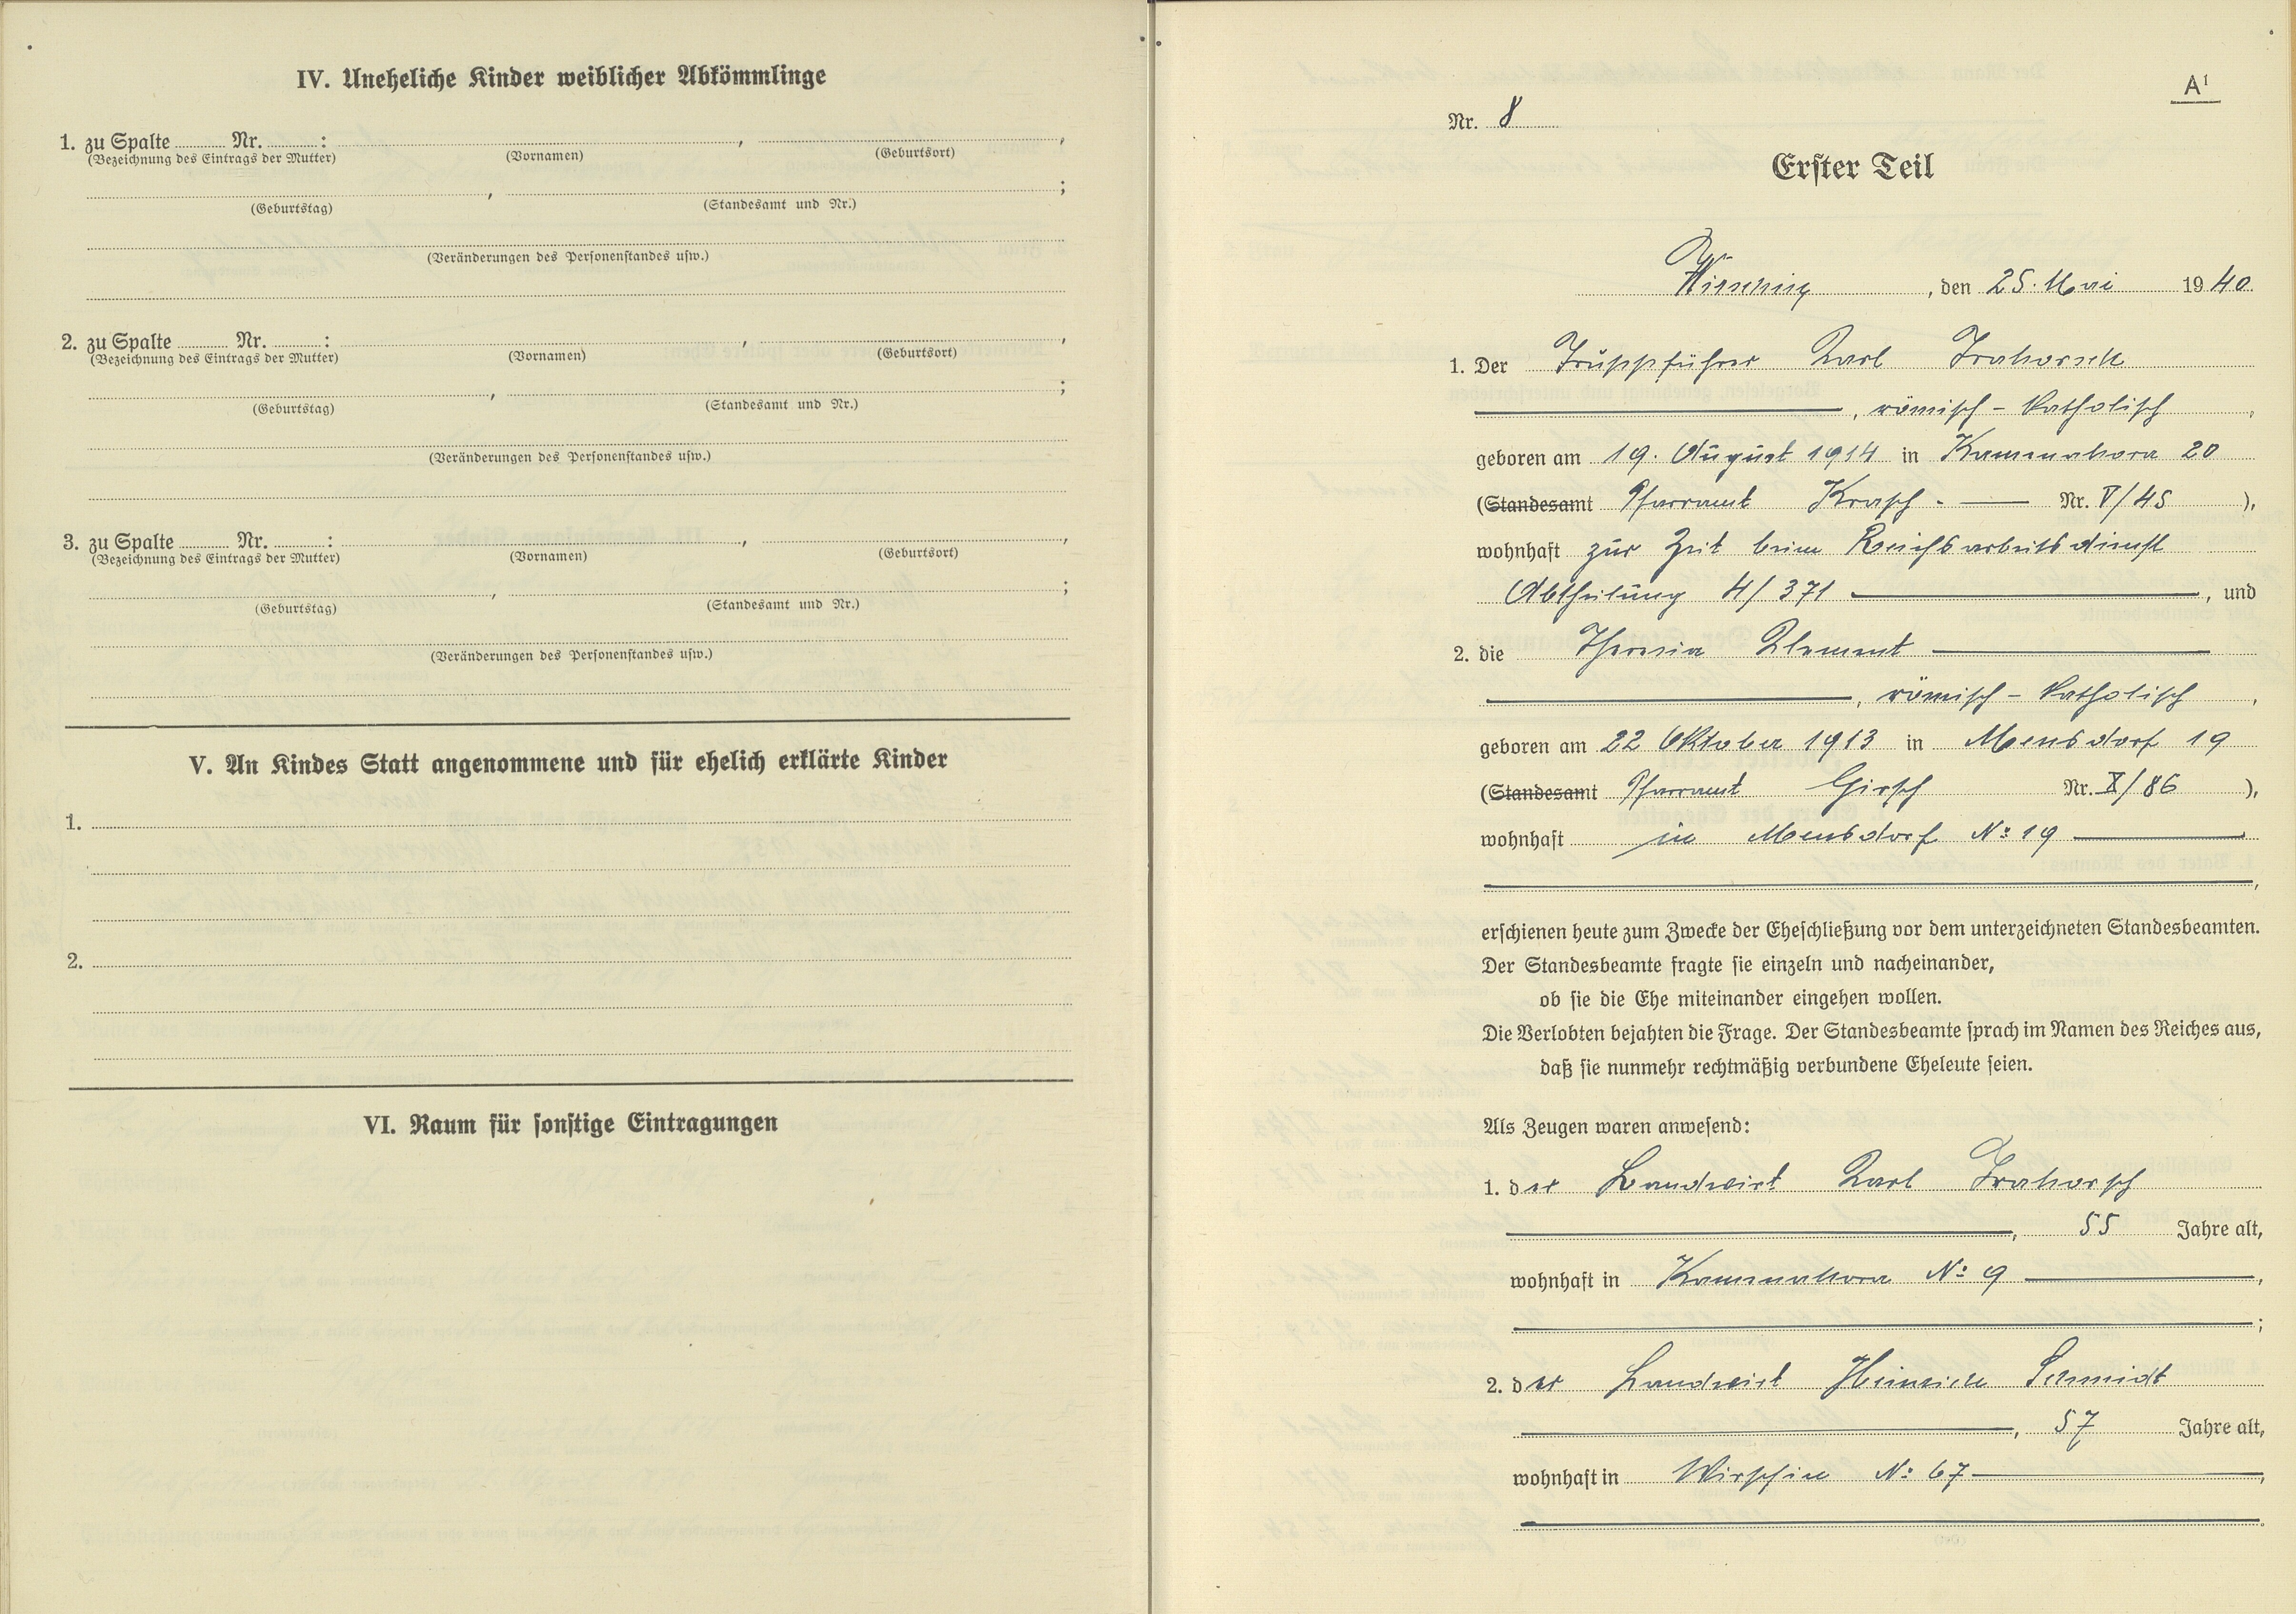 IV. Uneheliche Kinder weiblicher Abkömmlinge
1. zu Spalte Nr. : , ,
(Bezeichnung des Eintrags der Mutter) (Vornamen) (Geburtsort)
, ;
(Geburtstag) (Standesamt und Nr.)
(Veränderungen des Personenstandes usw.)
2. zu Spalte Nr. : , ,
(Bezeichnung des Eintrags der Mutter) (Vornamen) (Geburtsort)
, ;
(Geburtstag) (Standesamt und Nr.)
(Veränderungen des Personenstandes usw.)
3. zu Spalte Nr. : , ,
(Bezeichnung des Eintrags der Mutter) (Vornamen) (Geburtsort)
, ;
(Geburtstag) (Standesamt und Nr.)
(Veränderungen des Personenstandes usw.)
V. An Kindes Statt angenommene und für ehelich erklärte Kinder
1.
2.
VI. Raum für sonstige Eintragungen
A1
Nr. 8
Erster Teil
, den 25. Mai 1940
1. Der Truppführer Karl
, römisch - katholisch ,
geboren am 19. August 1914 in Kammahora 20
(Standesamt Pfarramt Krasch - Nr. V/45 ),
wohnhaft zur Zeit beim Reichsarbeitsdienst
Abtheilung 4/371 , und
2. die Theresia Klement
, römisch - katholisch ,
geboren am 22 Oktober 1913 in Mensdorf 19
(Standesamt Pfarramt Girsch Nr. X/86 ),
wohnhaft in Mensdorf No 19
,
erschienen heute zum Zwecke der Eheschließung vor dem unterzeichneten Standesbeamten.
Der Standesbeamte fragte sie einzeln und nacheinander,
ob sie die Ehe miteinander eingehen wollen.
Die Verlobten bejahten die Frage. Der Standesbeamte sprach im Namen des Reiches aus,
daß sie nunmehr rechtmäßig verbundene Eheleute seien.
Als Zeugen waren anwesend:
1. der Landwirt Karl
, 55 Jahre alt,
wohnhaft in Kammahora No 9 ,
;
2. der Landwirt Heinrich Schmidt
, 57 Jahre alt,
wohnhaft in Wirschin No 67 ,
.